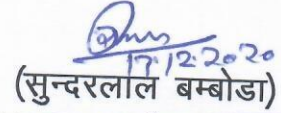 17.12.2020
(सुन्दरलाल बम्बोडा)